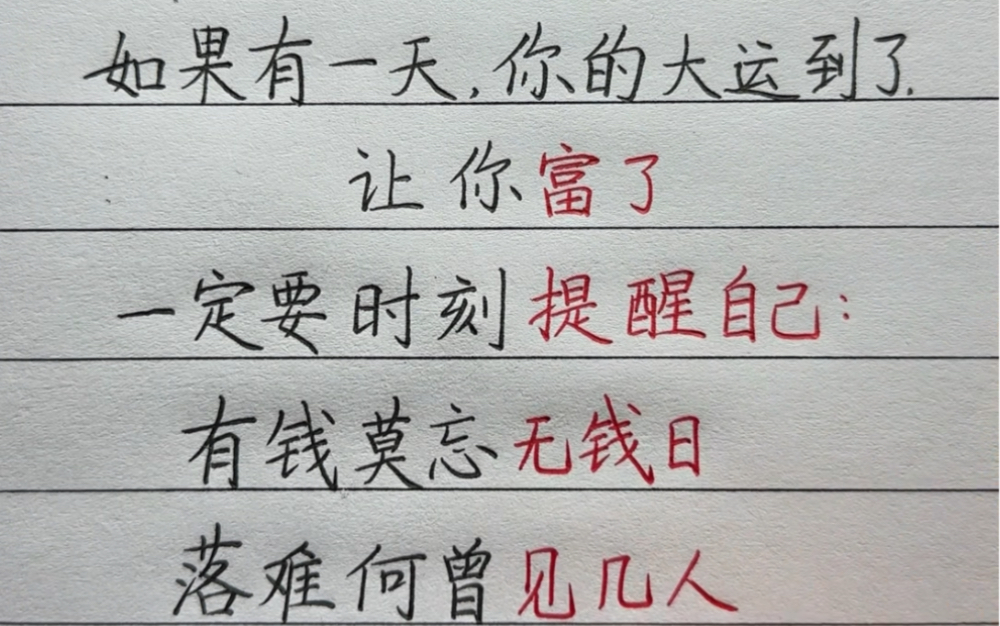 如果有一天,你的大运到了.
让你富了
一定要时刻提醒自己:
有钱莫忘无钱日
落难何曾见几人